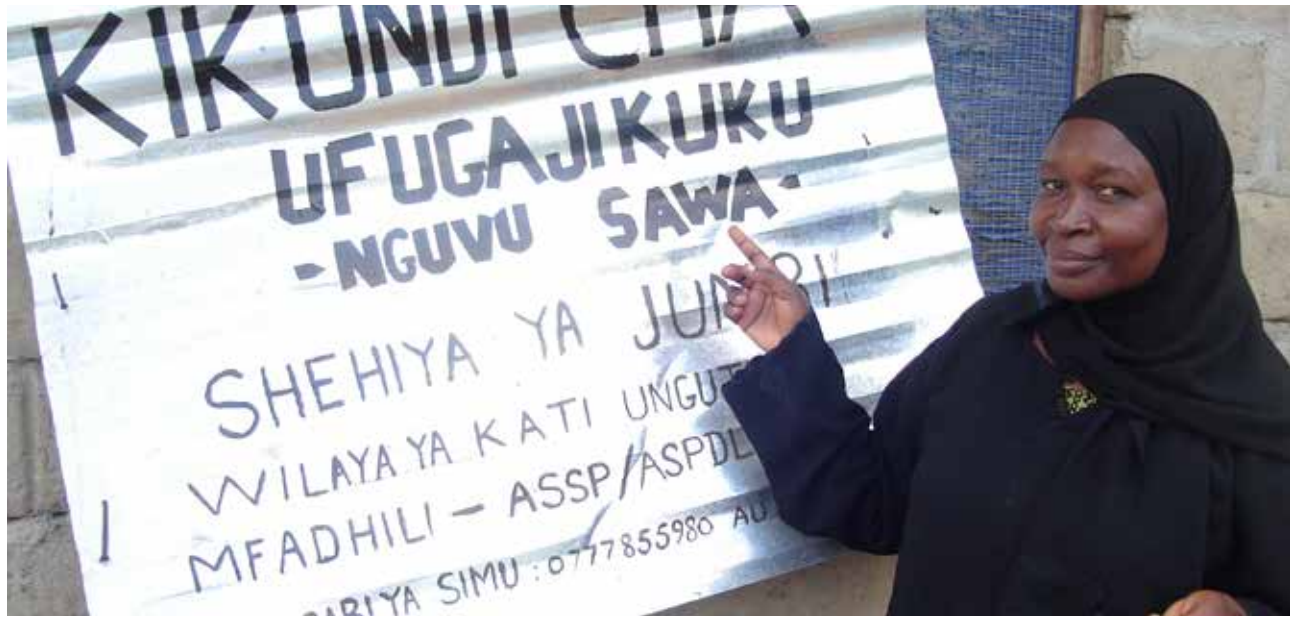 KIKUNDI CHA
UFUGAJI KUKU
-NGUVU SAWA-
SHEHIYA YA
WILAYA YA KATI
MFADHILI - ASSP/ASPDL
YA SIMU : 0777855980 AU